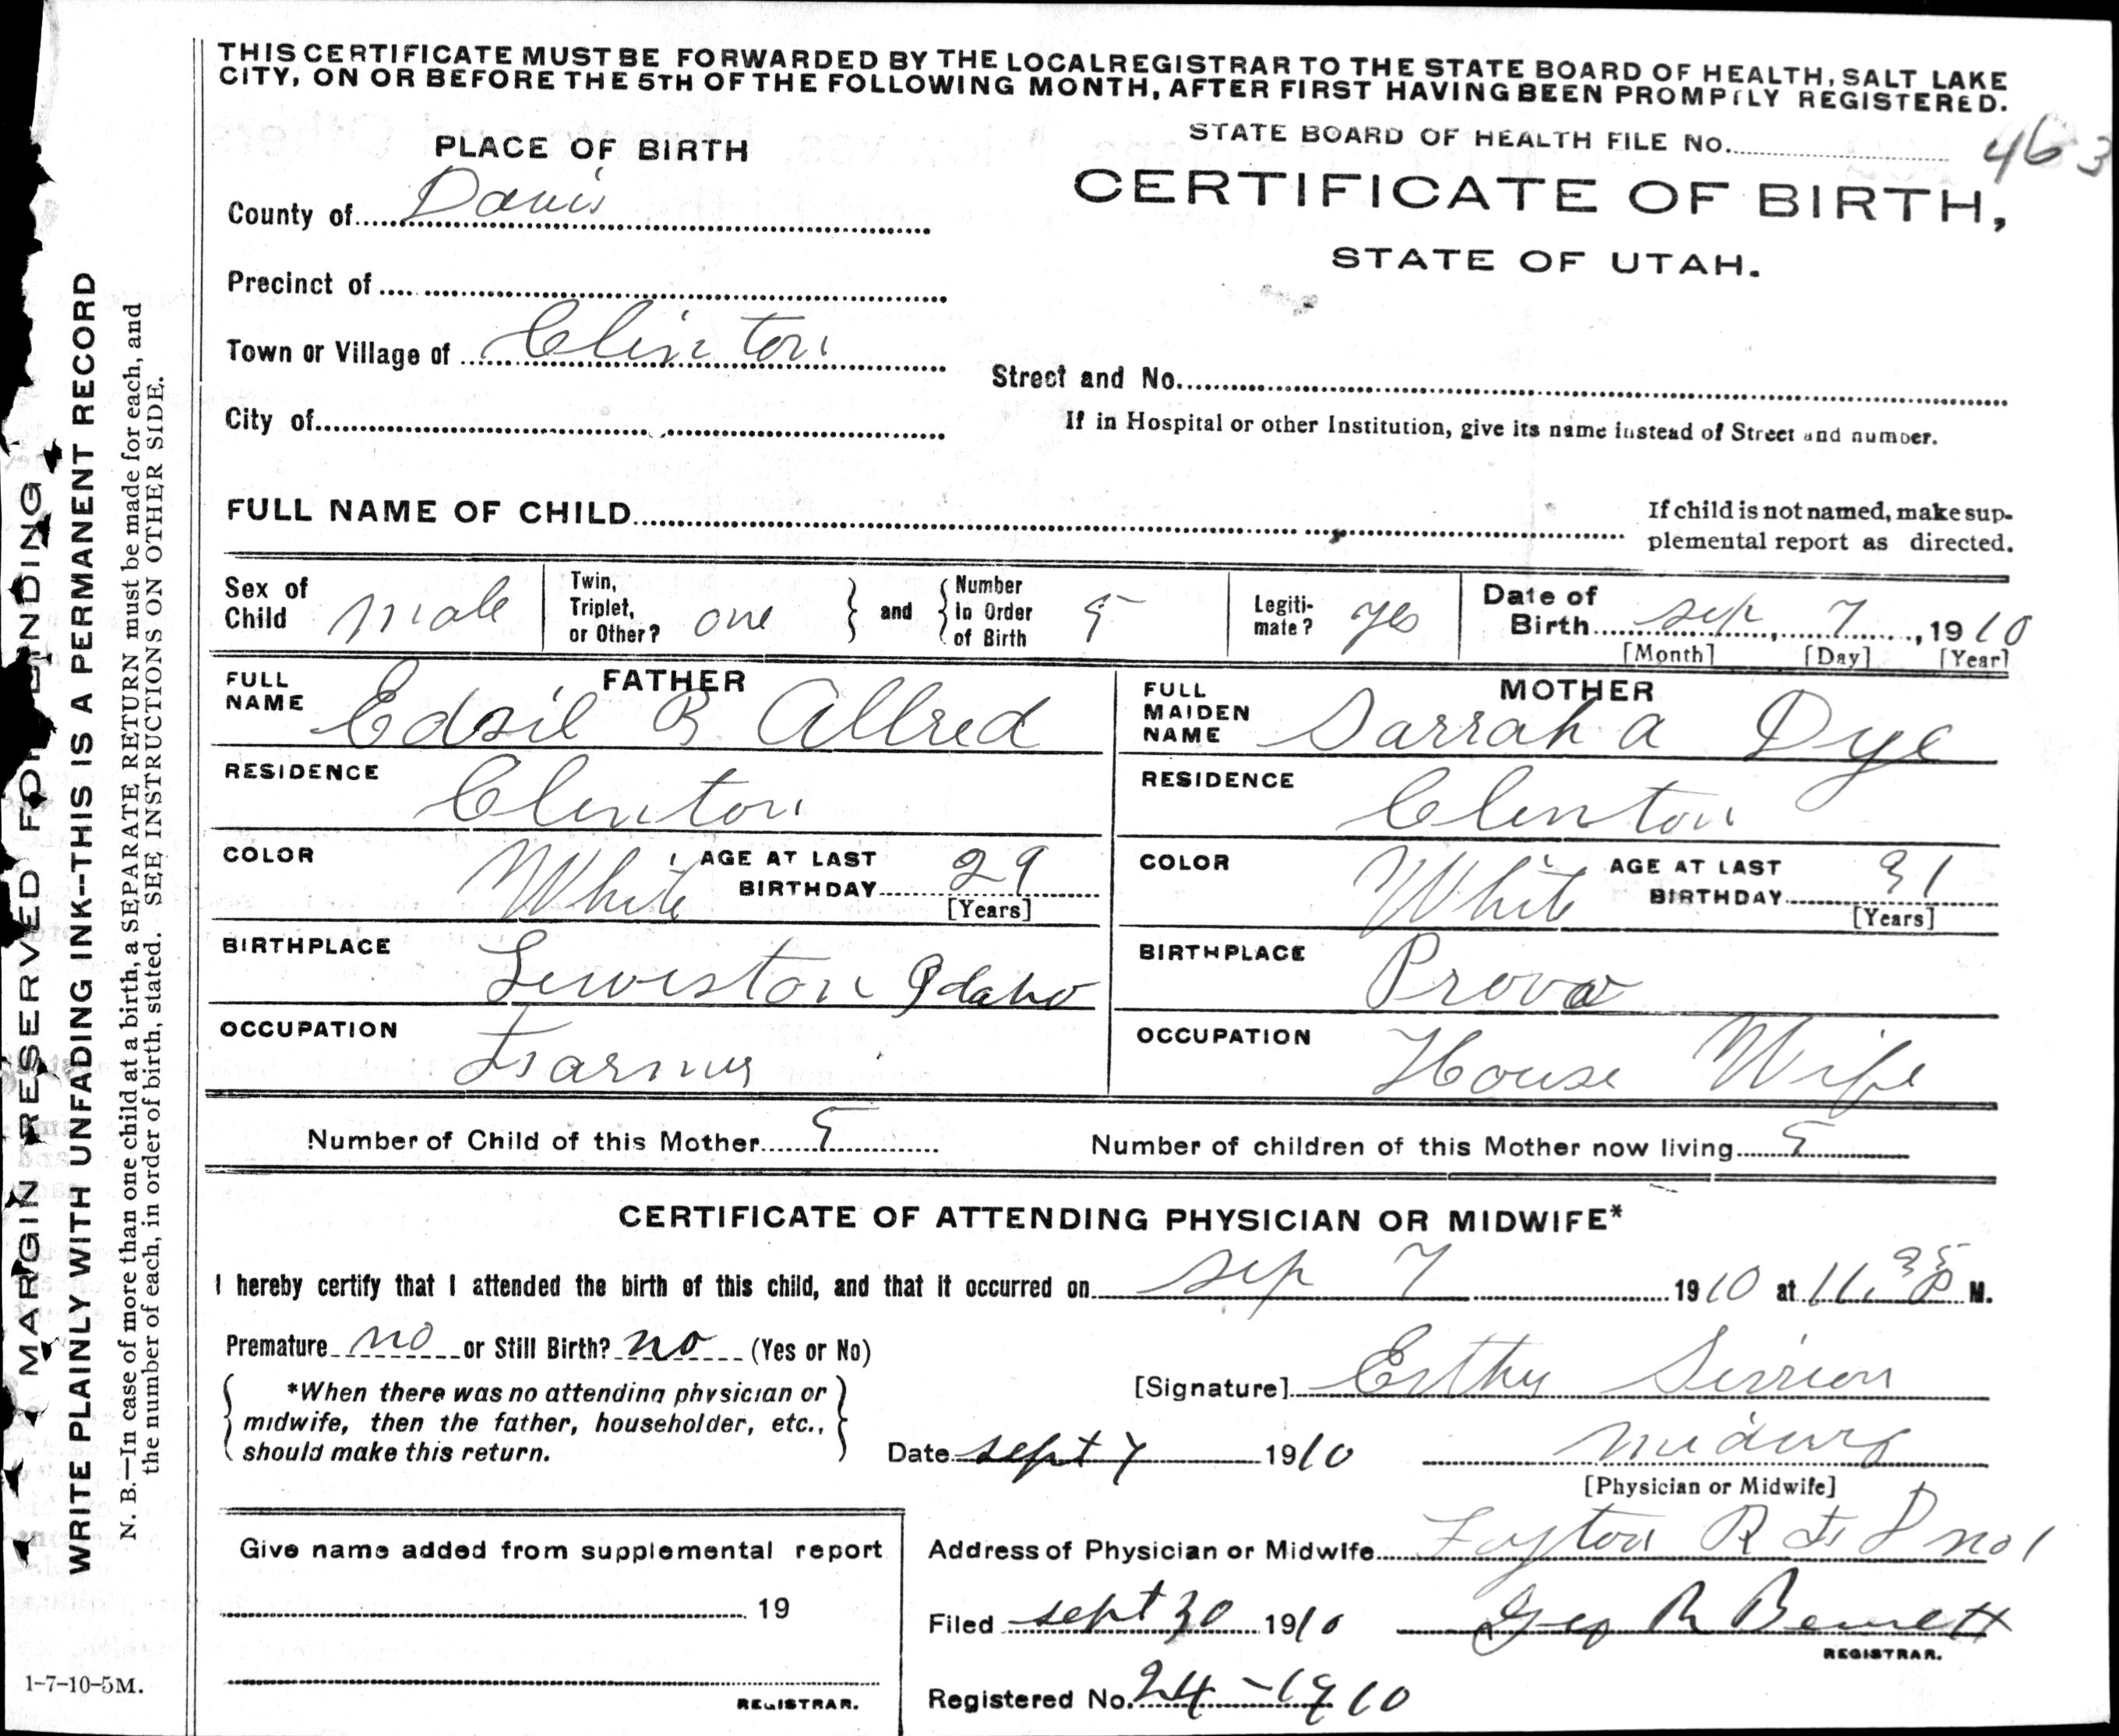 THIS CERTIFICATE MUST BE FORWARDED BY THE LOCAL REGISTRAR TO THE STATE BOARD OF HEALTH, SALT LAKE
CITY, ON OR BEFORE THE 5TH OF THE FOLLOWING MONTH, AFTER FIRST HAVING BEEN PROMPTLY REGISTERED.
STATE BOARD OF HEALTH FILE No. 463
PLACE OF BIRTH
CERTIFICATE OF BIRTH,
STATE OF UTAH.
County of Davis
Precinct of
Town or Village of Clinton
Street and No.
City of
If in Hospital or other Institution, give its name instead of Street and number.
FULL NAME OF CHILD
If child is not named, make sup-
plemental report as directed.
Sex of Child male
Twin, Triplet, or Other? one
and Number in Order of Birth 5
Legiti-mate? yes
Date of Birth Sep 7, 1910
[Month] [Day] [Year]
FATHER
FULL NAME Edsil B Allred
MOTHER
FULL MAIDEN NAME Sarrah a Dye
RESIDENCE Clinton
RESIDENCE Clinton
COLOR White AGE AT LAST BIRTHDAY 29 [Years]
COLOR White AGE AT LAST BIRTHDAY 31 [Years]
BIRTHPLACE Lewiston Idaho
BIRTHPLACE Provo
OCCUPATION Farmer
OCCUPATION House Wife
Number of Child of this Mother 5
Number of children of this Mother now living 5
CERTIFICATE OF ATTENDING PHYSICIAN OR MIDWIFE*
I hereby certify that I attended the birth of this child, and that it occurred on Sep 7 1910 at 11.35 M.
Premature no or Still Birth? no (Yes or No)
*When there was no attending physician or
midwife, then the father, householder, etc.,
should make this return.
[Signature]
Date Sept 7 1910
[Physician or Midwife]
Give name added from supplemental report
19
REGISTRAR.
Address of Physician or Midwife Layton R F D no 1
Filed Sept 30 1910 Geo R Bennett
REGISTRAR.
Registered No. 24-1910
MARGIN RESERVED FOR BINDING
WRITE PLAINLY WITH UNFADING INK--THIS IS A PERMANENT RECORD
N. B.—In case of more than one child at a birth, a SEPARATE RETURN must be made for each, and
the number of each, in order of birth, stated. SEE INSTRUCTIONS ON OTHER SIDE.
1-7-10-5M.